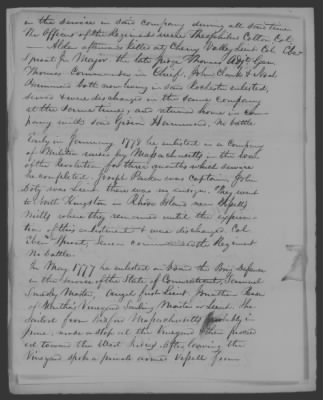 in the service in said company during all said time
The Officers of the Regiment were Theophilus Cotton Col
— Alden afterwards killed at Cherry Valley Lieut Col Ebr
Sprout Jr Major the late judge Thomas Adjt Gen
Thomas Commander in Chief, John Clark & Noah
Hammond both now living in said Rochester enlisted,
served & were discharged in the same company
at the same times, and returned home in com
pany with said Gideon Hammond. No battle.
Early in January 1778 he enlisted in a Company
of Militia raised by Massachusetts in the war
of the Revolution for three months which service
he completed. Joseph Parker was captain, John
Doty was Lieut there was no ensign. They went
to South Kingston in Rhode Island near
Mills where they remained until the expira-
tion of this enlistment & were discharged. Col
Eben Sprout, commanded the Regiment
No battle.
In May 1777 he enlisted on board the Brig Defence
in the service of the State of Connecticut, Samuel
Smedly Master, first Lieut. Jonathan
of Martha's Vineyard Sailing Master or Lieut. She
sailed from Bedford Massachusetts probably in
June, made a stop at the Vineyard & then proceed
ed toward the West Indies. After leaving the
Vineyard spoke a private armed vessell from